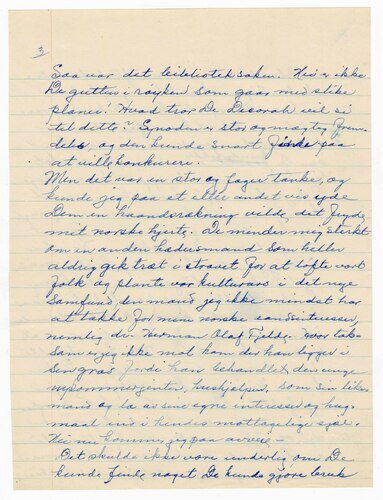 3
Saa var det bibliotek saken. Nei er ikke
De gutten i røyken som gaar med slike
planer! Hvad tror De Decorah vil si
til dette? Synoden er stor og mægtig frem-
deles, og den kunde snart finde paa
at ville konkurere.
Men det var en stor og fager tanke, og
kunde jeg paa et eller andet vis yde
Dem en haandsrækning vilde det fryde
mit norske hjerte. De minder mig sterkt
om en anden hædersmand som heller
aldrig gik træt i strævet for at løfte vort
folk og plante vor kulturarv i det nye
samfund, en mand jeg ikke mindst har
at takke for mine norske interesser,
nemlig dr. Herman Olaf Fjelde. Hvor tak-
sam er jeg ikke mot ham der han ligger i
sin grav fordi han behandlet den unge
nykommerjenten, hushjælpen, som sin like-
mand og la av sine egne interesser og hug-
maal ind i hendes mottagelige sjæl.
Nei nu kommer jeg paa avveie. –
Det skulde ikke være underlig om De
kunde finde noget De kunde gjøre bruk